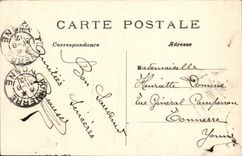 CARTE POSTALE
Correspondance
Adresse
Bon Souvenir
Sincères
Amitiés
Mademoiselle
Henriette
rue Général Campenon
Tonnerre
Yonne